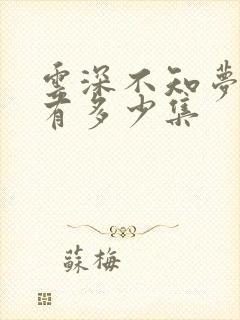 雲深不知夢
有多少集
蘇梅